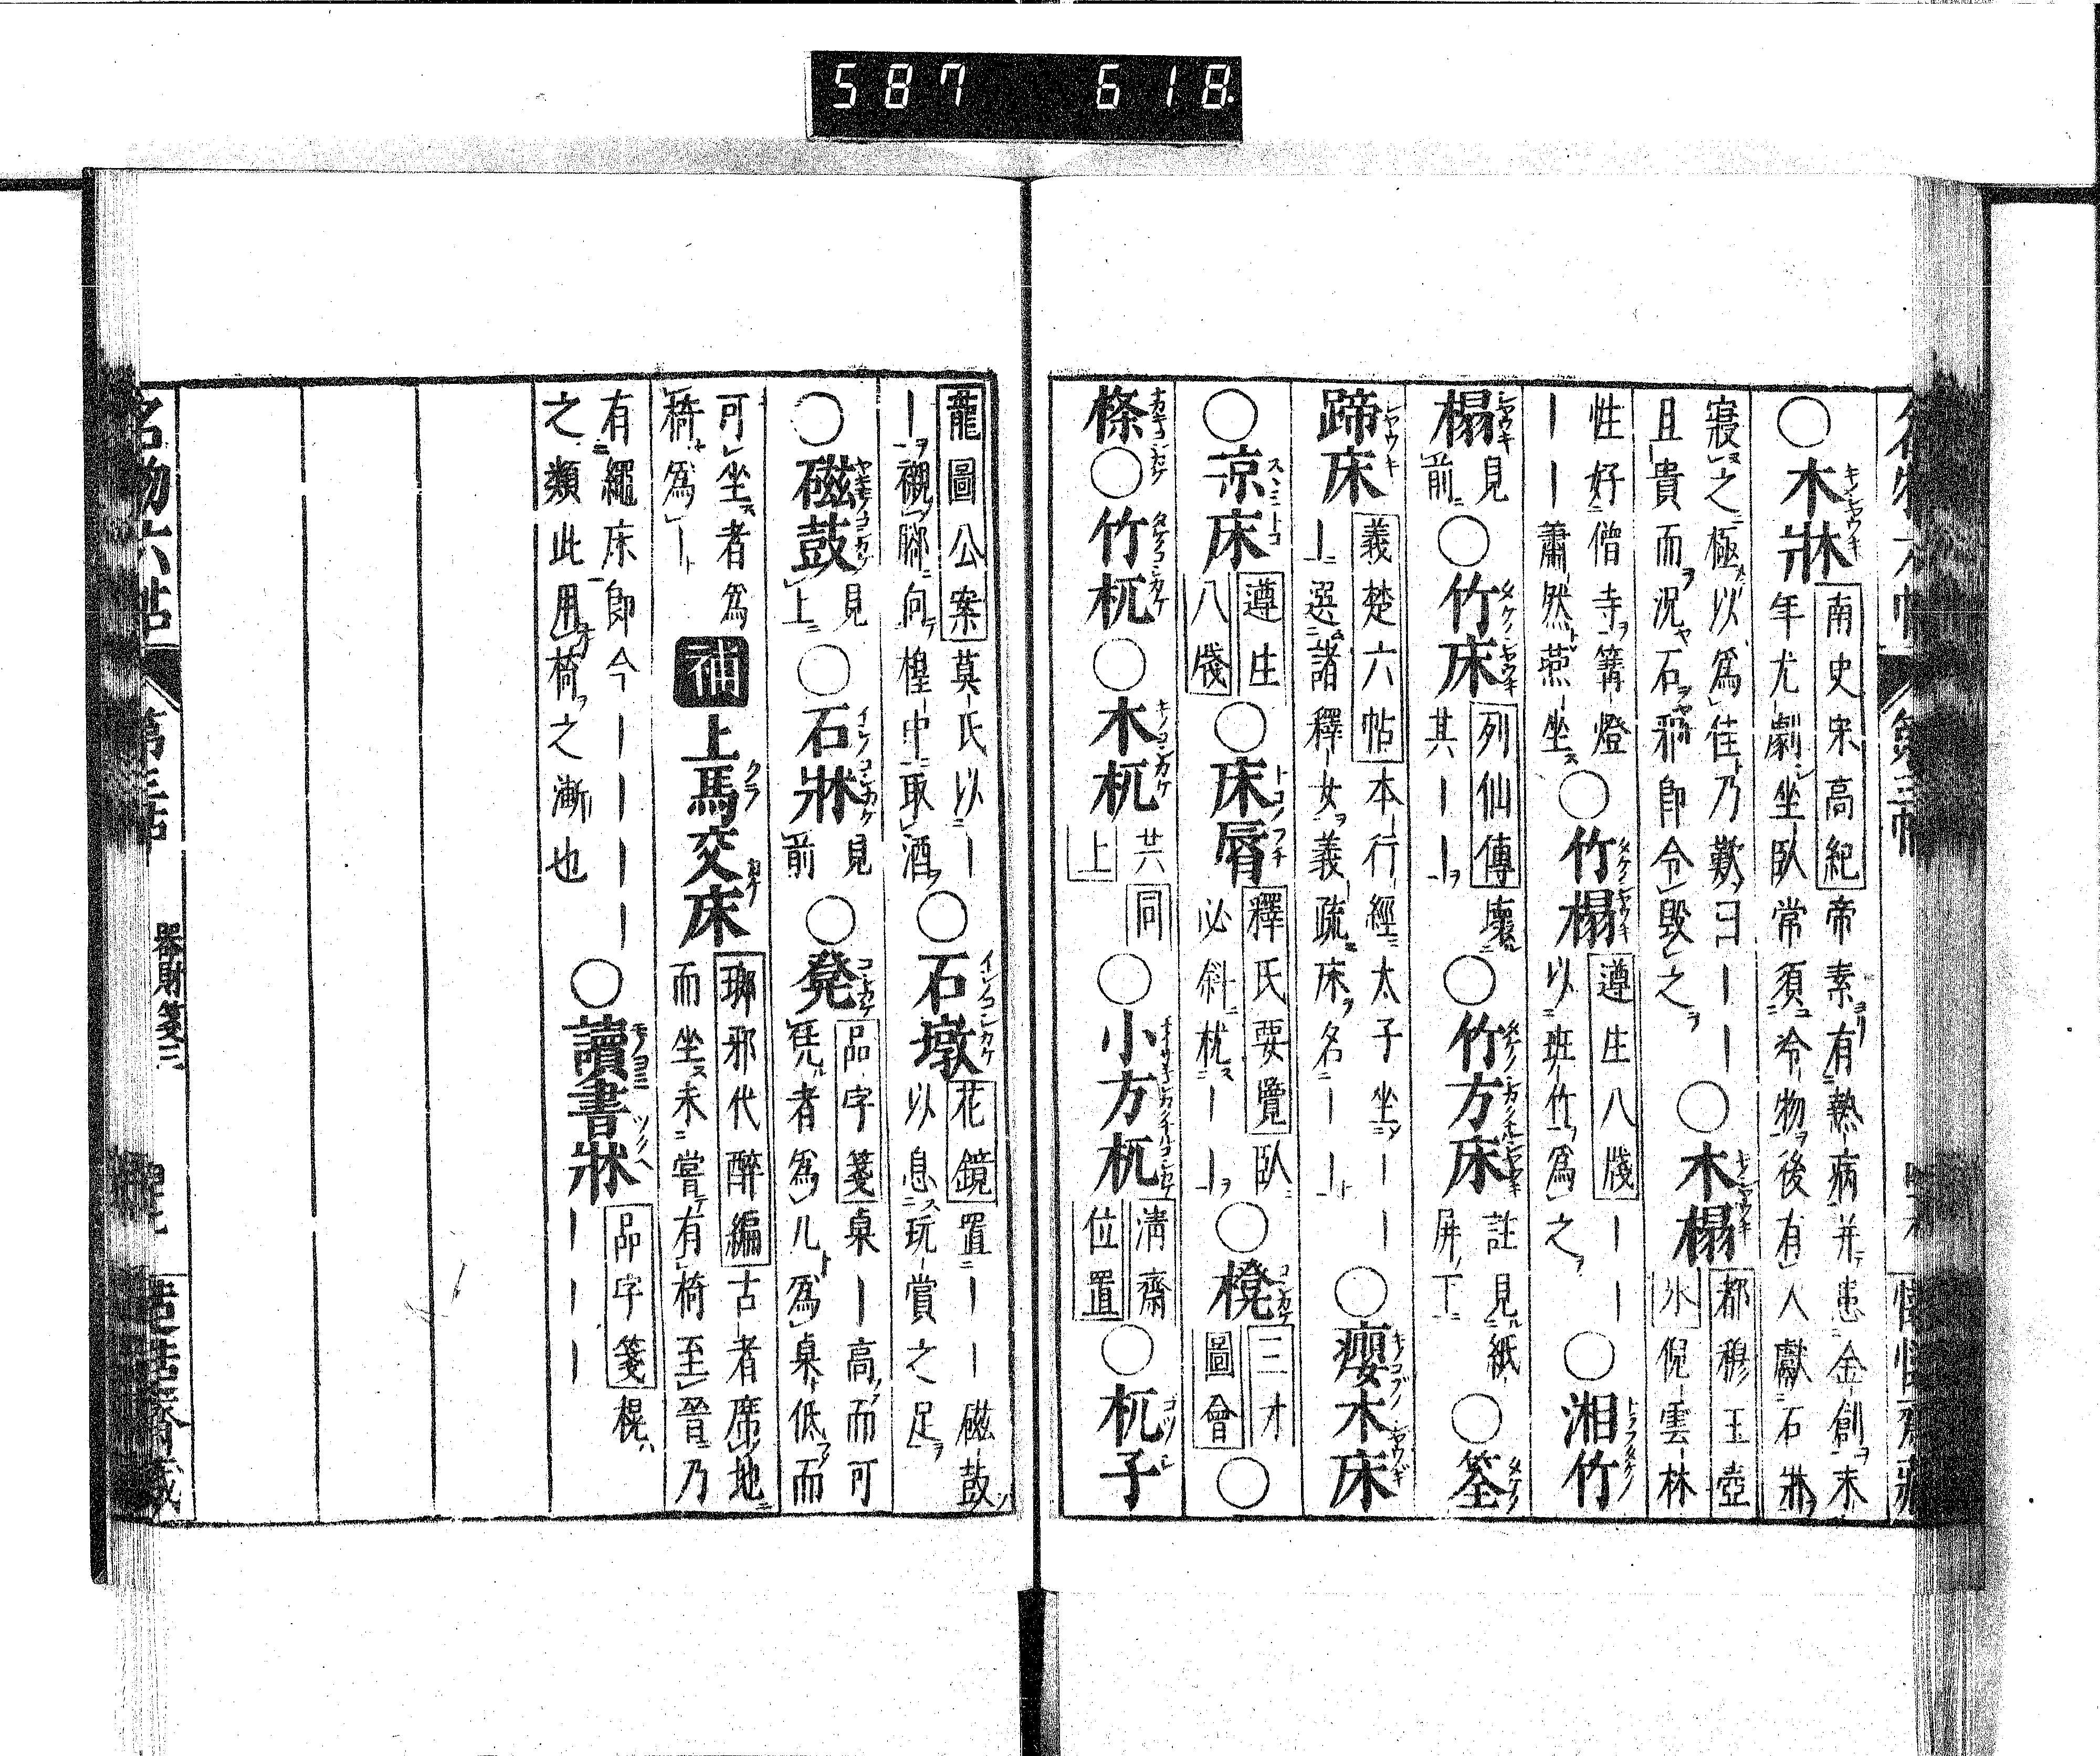 587 618.
○木牀 南史宋高紀 帝素有熱病并患金創末
年尤劇坐臥常須冷物後有人獻石牀
寢之極以爲佳乃歎曰――
且貴而況石邪卽令毀之
○木榻 都穆玉壺
氷 倪雲林
性好僧寺篝燈
――蕭然燕坐
○竹榻 遵生八牋 ――
以班竹爲之
○湘竹
榻 見
前
○竹床 列仙傳 壞
其――
○竹方床 註見紙
屏下
○筌
蹄床 義楚六帖 本行經太子坐――
―選諸釋女義疏床名――
○癭木床
○凉床 遵生
八牋
○床脣 釋氏要覽 臥
必斜枕――
○櫈 三才
圖會
○
條○竹杌○木杌 共同
上
○小方杌 淸齋
位置
○杌子
龍圖公案 莫氏以―
―襯脚向橙中取酒
○石墩 花鏡 置――磁鼓
以息玩賞之足
○磁鼓 見
上
○石牀 見
前
○凳 品字箋 桌―高而可
凭者爲几爲桌低而
可坐者爲
椅爲―
補 上馬交床 瑯邪代醉編 古者席地
而坐未嘗有椅至晉乃
有繩床卽今――――
之類此用椅之漸也
○讀書牀 品字箋 榥
―――
名物六帖 第三帖 器財箋三